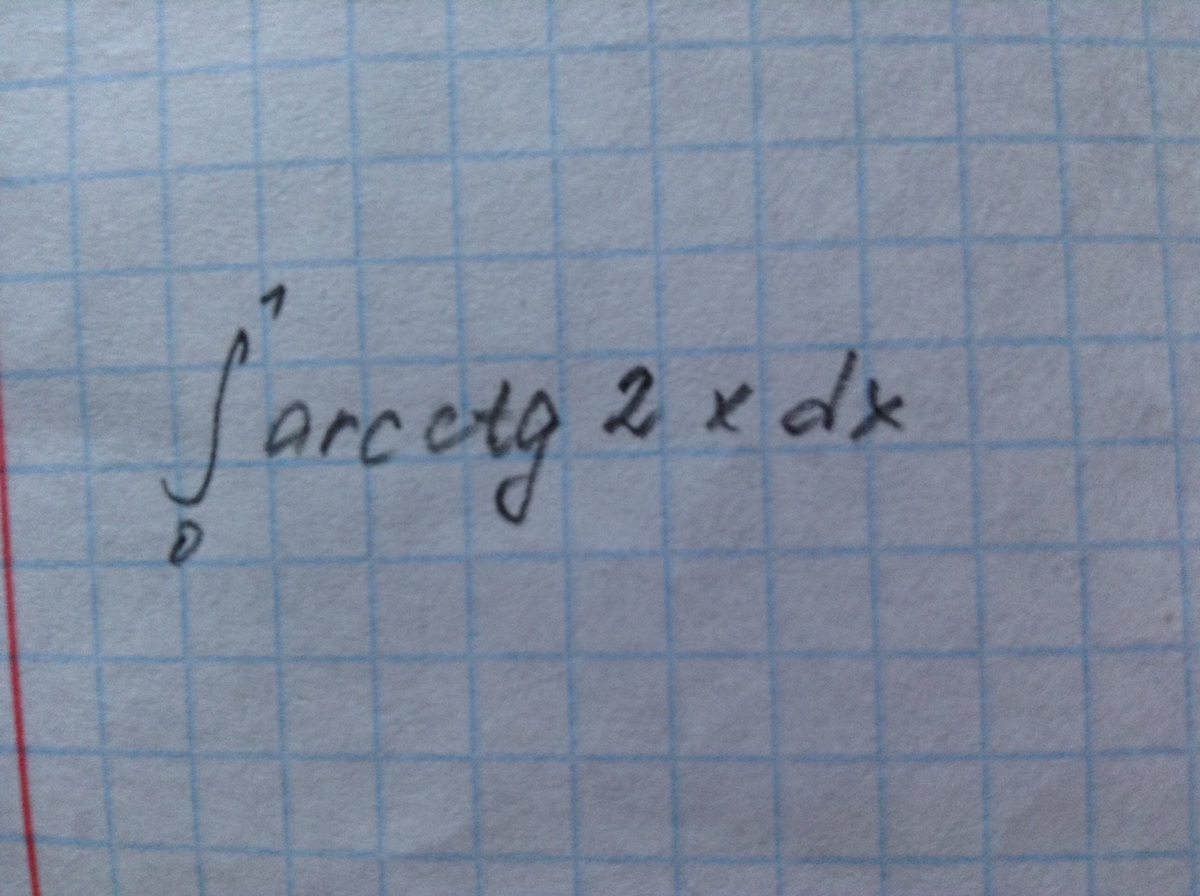 ∫₀¹ arcctg 2x dx